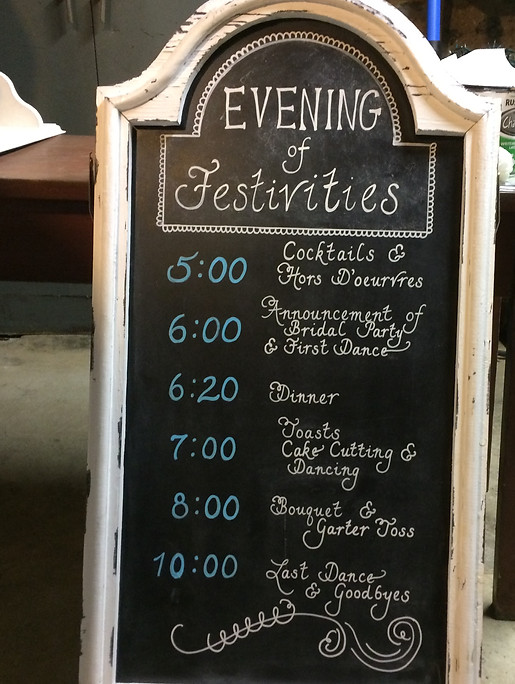 EVENING
of
Festivities
5:00 Cocktails &
Hors D'oeurvres
6:00 Announcement of
Bridal Party
& First Dance
6:20 Dinner
7:00 Toasts
Cake Cutting &
Dancing
8:00 Bouquet &
Garter Toss
10:00 Last Dance
& Goodbyes